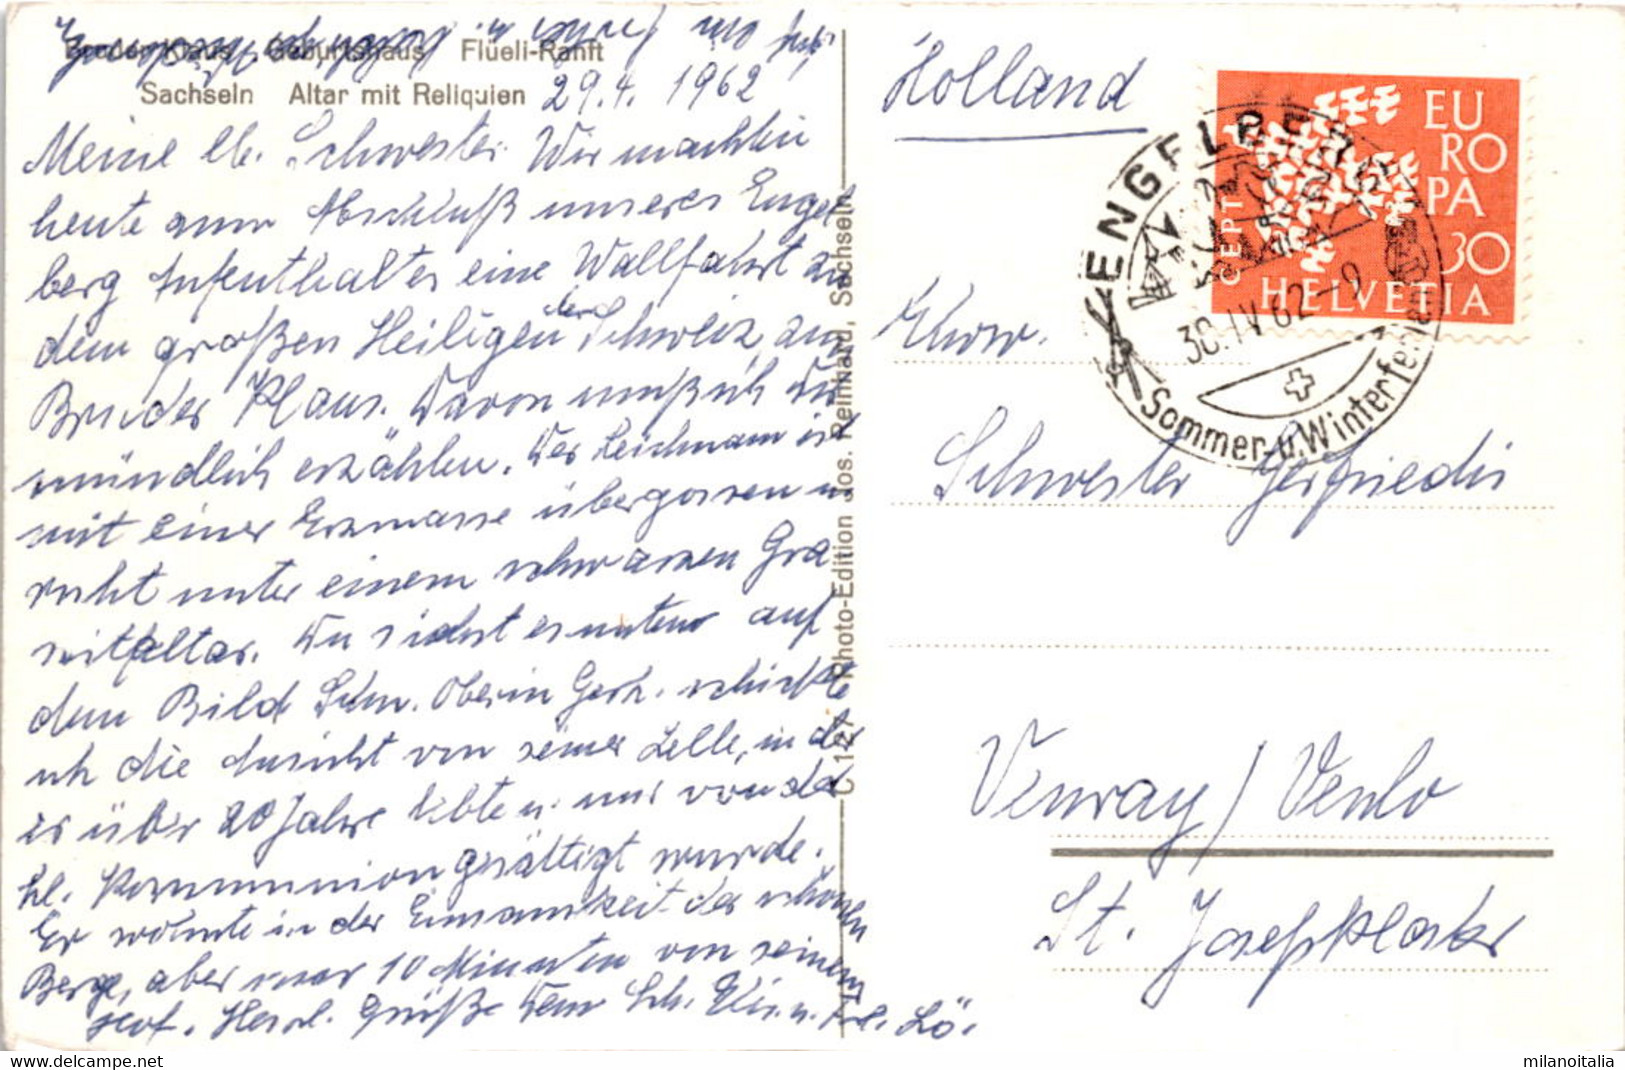 Bruder Klaus Geburtshaus Flüeli-Ranft
Sachseln Altar mit Reliquien
29.4.1962
Meine lb. Schwester. Wir machten
heute zum Abschluß unseres Engel
berg Aufenthaltes eine Wallfahrt zu
dem großen Heiligen der Schweiz, zum
Bruder Klaus. Davon muß ich Dir
mündlich erzählen. Der Leichnam ist
mit einer Erzmasse übergossen u
ruht unter einem schwarzen Gra
nitaltar. Du siehst es unten auf
dem Bild Schw. Oberin Gerh. schickte
ich die Ansicht von seiner Zelle, in der
er über 20 Jahre lebte u. nur von der
hl. Kommunion gesättigt wurde.
Er wohnte in der Einsamkeit der schönen
Berge, aber nur 10 Minuten von seinem
Hof. Herzl. Grüße Dein Lö.
C 127 Photo-Edition Jos. Reinhard, Sachseln
Holland
EU
RO
PA
30
CEPT
HELVETIA
ENGELBERG
30.IV.62-9
Sommer-u.Winterferien
Ehrw.
Schwester Gerfriedis
Venray / Venlo
St. Josefskloster
delcampe.net
milanoitalia